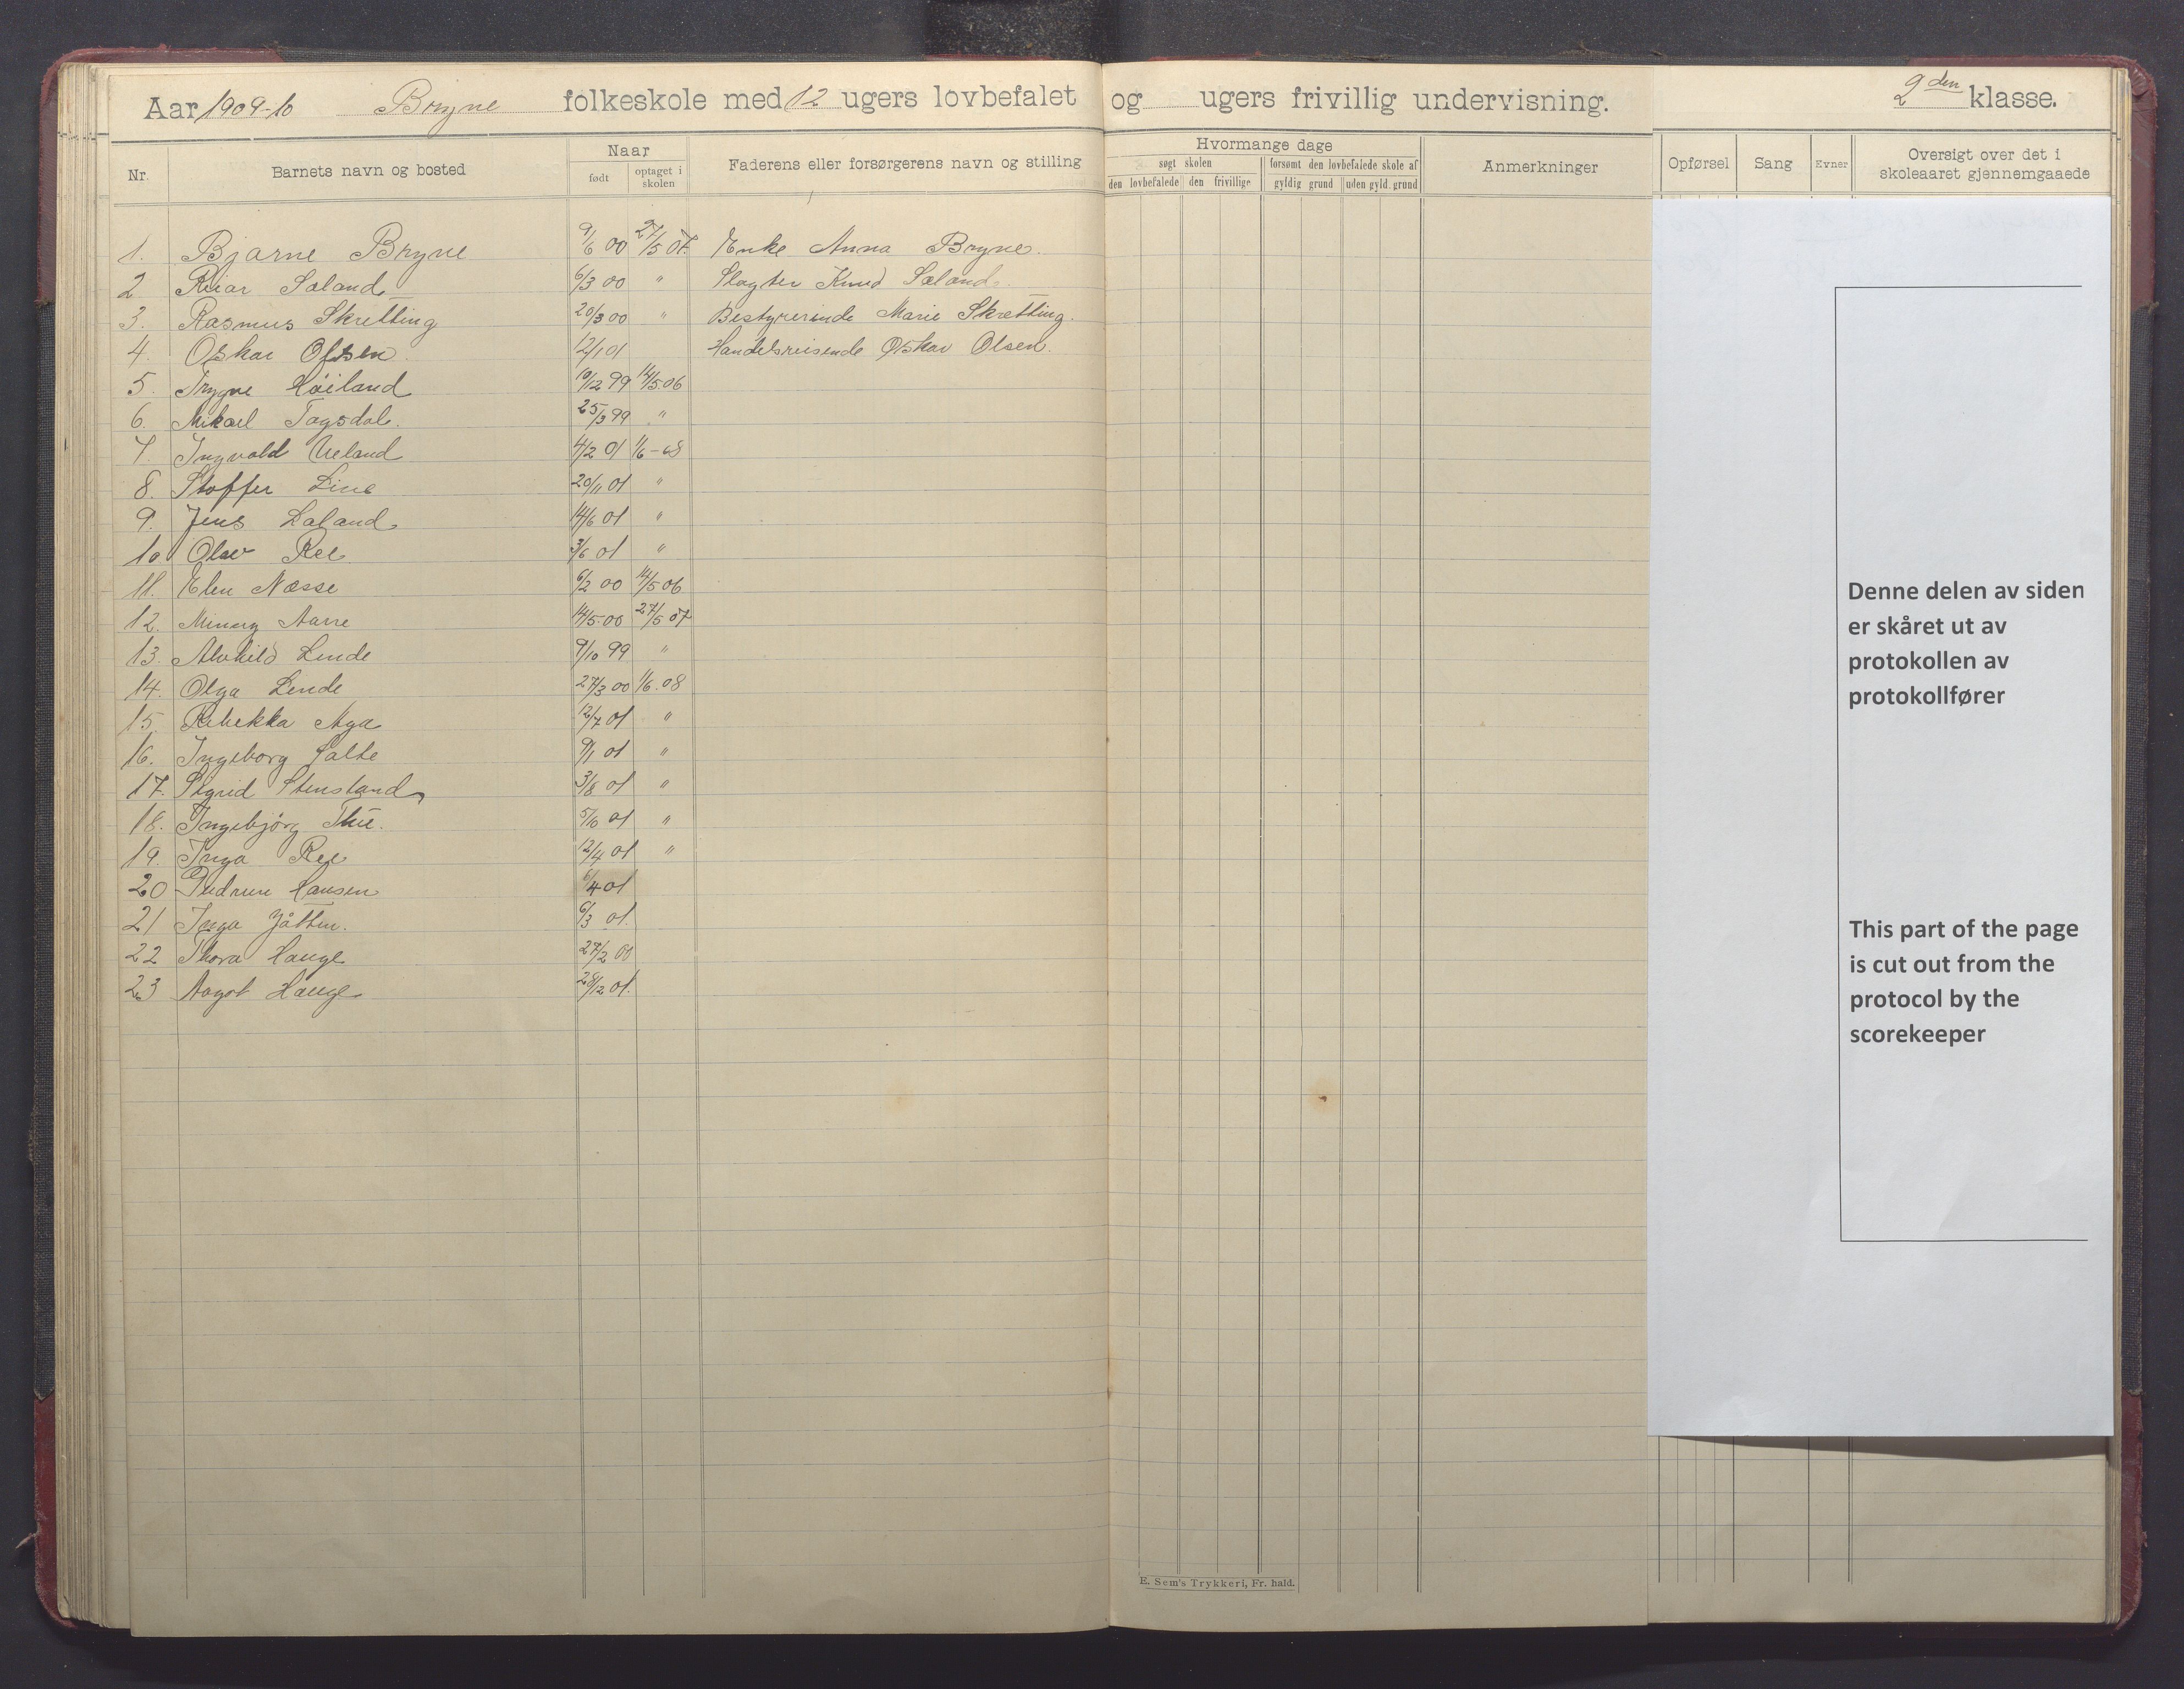 Aar 1909-10 Bryne folkeskole med 12 ugers lovbefalet og ugers frivillig undervisning. 2den klasse.
Nr. Barnets navn og bosted Naar født optaget i skolen Faderens eller forsørgerens navn og stilling Hvormange dage søgt skolen den lovbefalede den frivillige forsømt den lovbefalede skole af gyldig grund uden gyld. grund Anmerkninger Opførsel Sang Evner Oversigt over det i skoleaaret gjennemgaaede
1. Bjarne Bryne 9/6 00 27/5 07. Enke Anna Bryne.
2. Reiar Sæland 6/3 00 " Slagter Knud Sæland.
3. Rasmus Skretting 20/3 00 " Bestyrerinde Marie Skretting.
4. Oskar Olsen. 12/1 01 Handelsreisende Oskar Olsen.
5. Trygve Høiland 10/12 99 14/5 06
6. Mikael Tagsdal. 25/3 99 "
7. Ingvald Ueland 4/2 01 1/6-08
8. Stoffer Line 20/11 01 "
9. Jens Laland 14/6 01 "
10 Olav Ree 3/6 01 "
11. Elen Næsse 6/2 00 14/5 06
12. Minny Aarre 14/5 00 27/5 07
13. Alvhild Lende 9/10 99 "
14. Olga Lende 27/3 00 1/6.08
15. Rebekka Aga 12/7 01 "
16. Ingeborg Salte 9/1 01 "
17. Sigrid Stensland 3/8 01 "
18. Ingebjørg Thu. 5/10 01 "
19. Inga Ree 12/4 01 "
20 Gudrun Hansen 6/4 01
21 Inga Jåtten. 6/3 01.
22 Thora Hauge 27/2 00
23 Aagot Hauge 28/12 01.
Denne delen av siden
er skåret ut av
protokollen av
protokollfører
This part of the page
is cut out from the
protocol by the
scorekeeper
E. Sem's Trykkeri, Fr. hald.